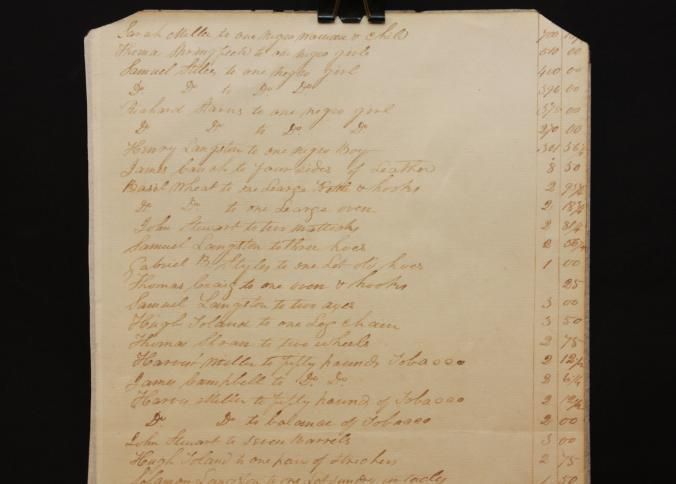 Sarah Miller to one negro woman & Child 700
Thoma Springfield to one negro girle 510 00
Samuel Stiles to one negro girl 400 00
Do Do to Do Do 396 00
Richard Starns to one negro girl 375 00
Do Do to Do Do 270 00
Henry Langston to one negro Boy 301 56¼
James to four sides of Leather 8 50
Basil Wheat to one Learge & hooks 2 93¾
Do Do to one Learge oven 2 18¾
John Stewart to two mattocks 2 31¼
Samuel Langston to three hoes 2
Gabriel B Styles to one Lot old hoes 1 00
Thomas Craig to one oven & hooks 25
Samuel Langston to two axes 3 00
Hugh Toland to one Log Chain 3 50
Thomas Sloan to two wheels 2 75
Harvey Miller to fifty pounds Tobacco 2 12½
James Campbell to Do Do 2 6¼
Harvey Miller to fifty pound of Tobacco 2 12½
Do Do to balance of Tobacco 2 00
John Stewart to seven Barrels 3 00
Hugh Toland to one pair of 2 75
Solomon Langston to one Lot sundry 1 50